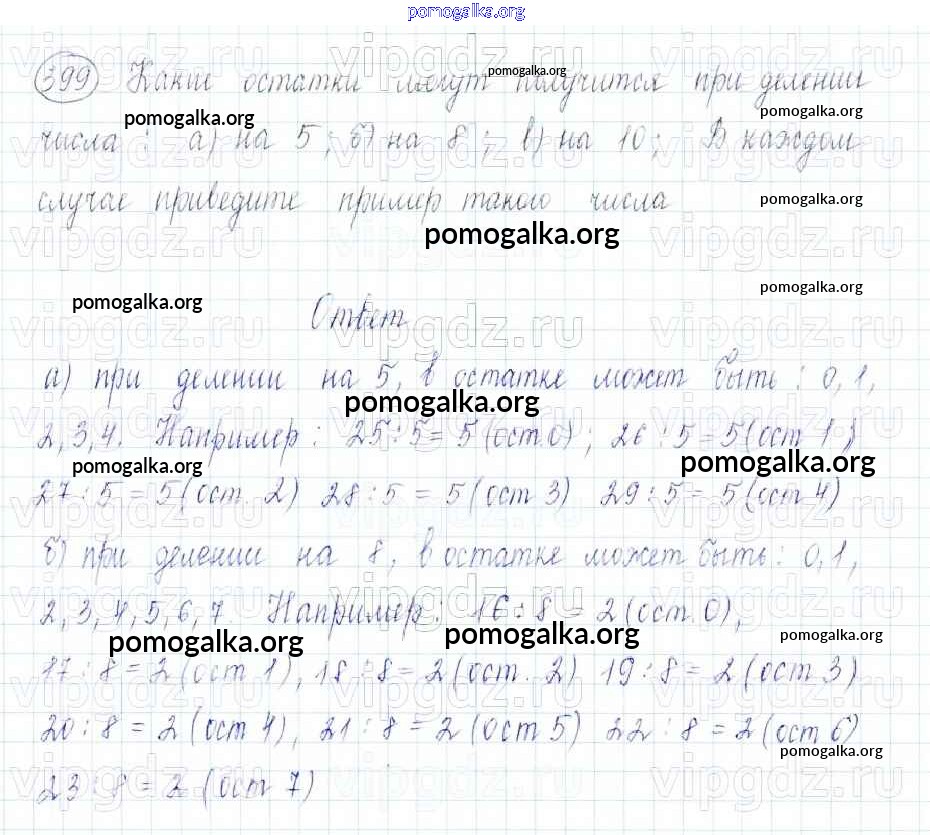 pomogalka.org
399 Какие остатки могут получится при делении
pomogalka.org
pomogalka.org
pomogalka.org
числа : а) на 5 ; б) на 8 ; в) на 10 ; В каждом
случае приведите пример такого числа
pomogalka.org
pomogalka.org
pomogalka.org
pomogalka.org
Ответ
а) при делении на 5, в остатке может быть : 0, 1,
pomogalka.org
2, 3, 4. Например : 25 : 5 = 5 (ост. 0) ; 26 : 5 = 5 (ост 1)
pomogalka.org
pomogalka.org
27 : 5 = 5 (ост. 2) 28 : 5 = 5 (ост 3) 29 : 5 = 5 (ост 4)
б) при делении на 8, в остатке может быть : 0, 1,
2, 3, 4, 5, 6, 7 Например : 16 : 8 = 2 (ост. 0),
pomogalka.org
pomogalka.org
pomogalka.org
17 : 8 = 2 (ост 1), 18 : 8 = 2 (ост. 2) 19 : 8 = 2 (ост 3)
20 : 8 = 2 (ост 4), 21 : 8 = 2 (ост 5) 22 : 8 = 2 (ост 6)
pomogalka.org
23 : 8 = 2 (ост 7)